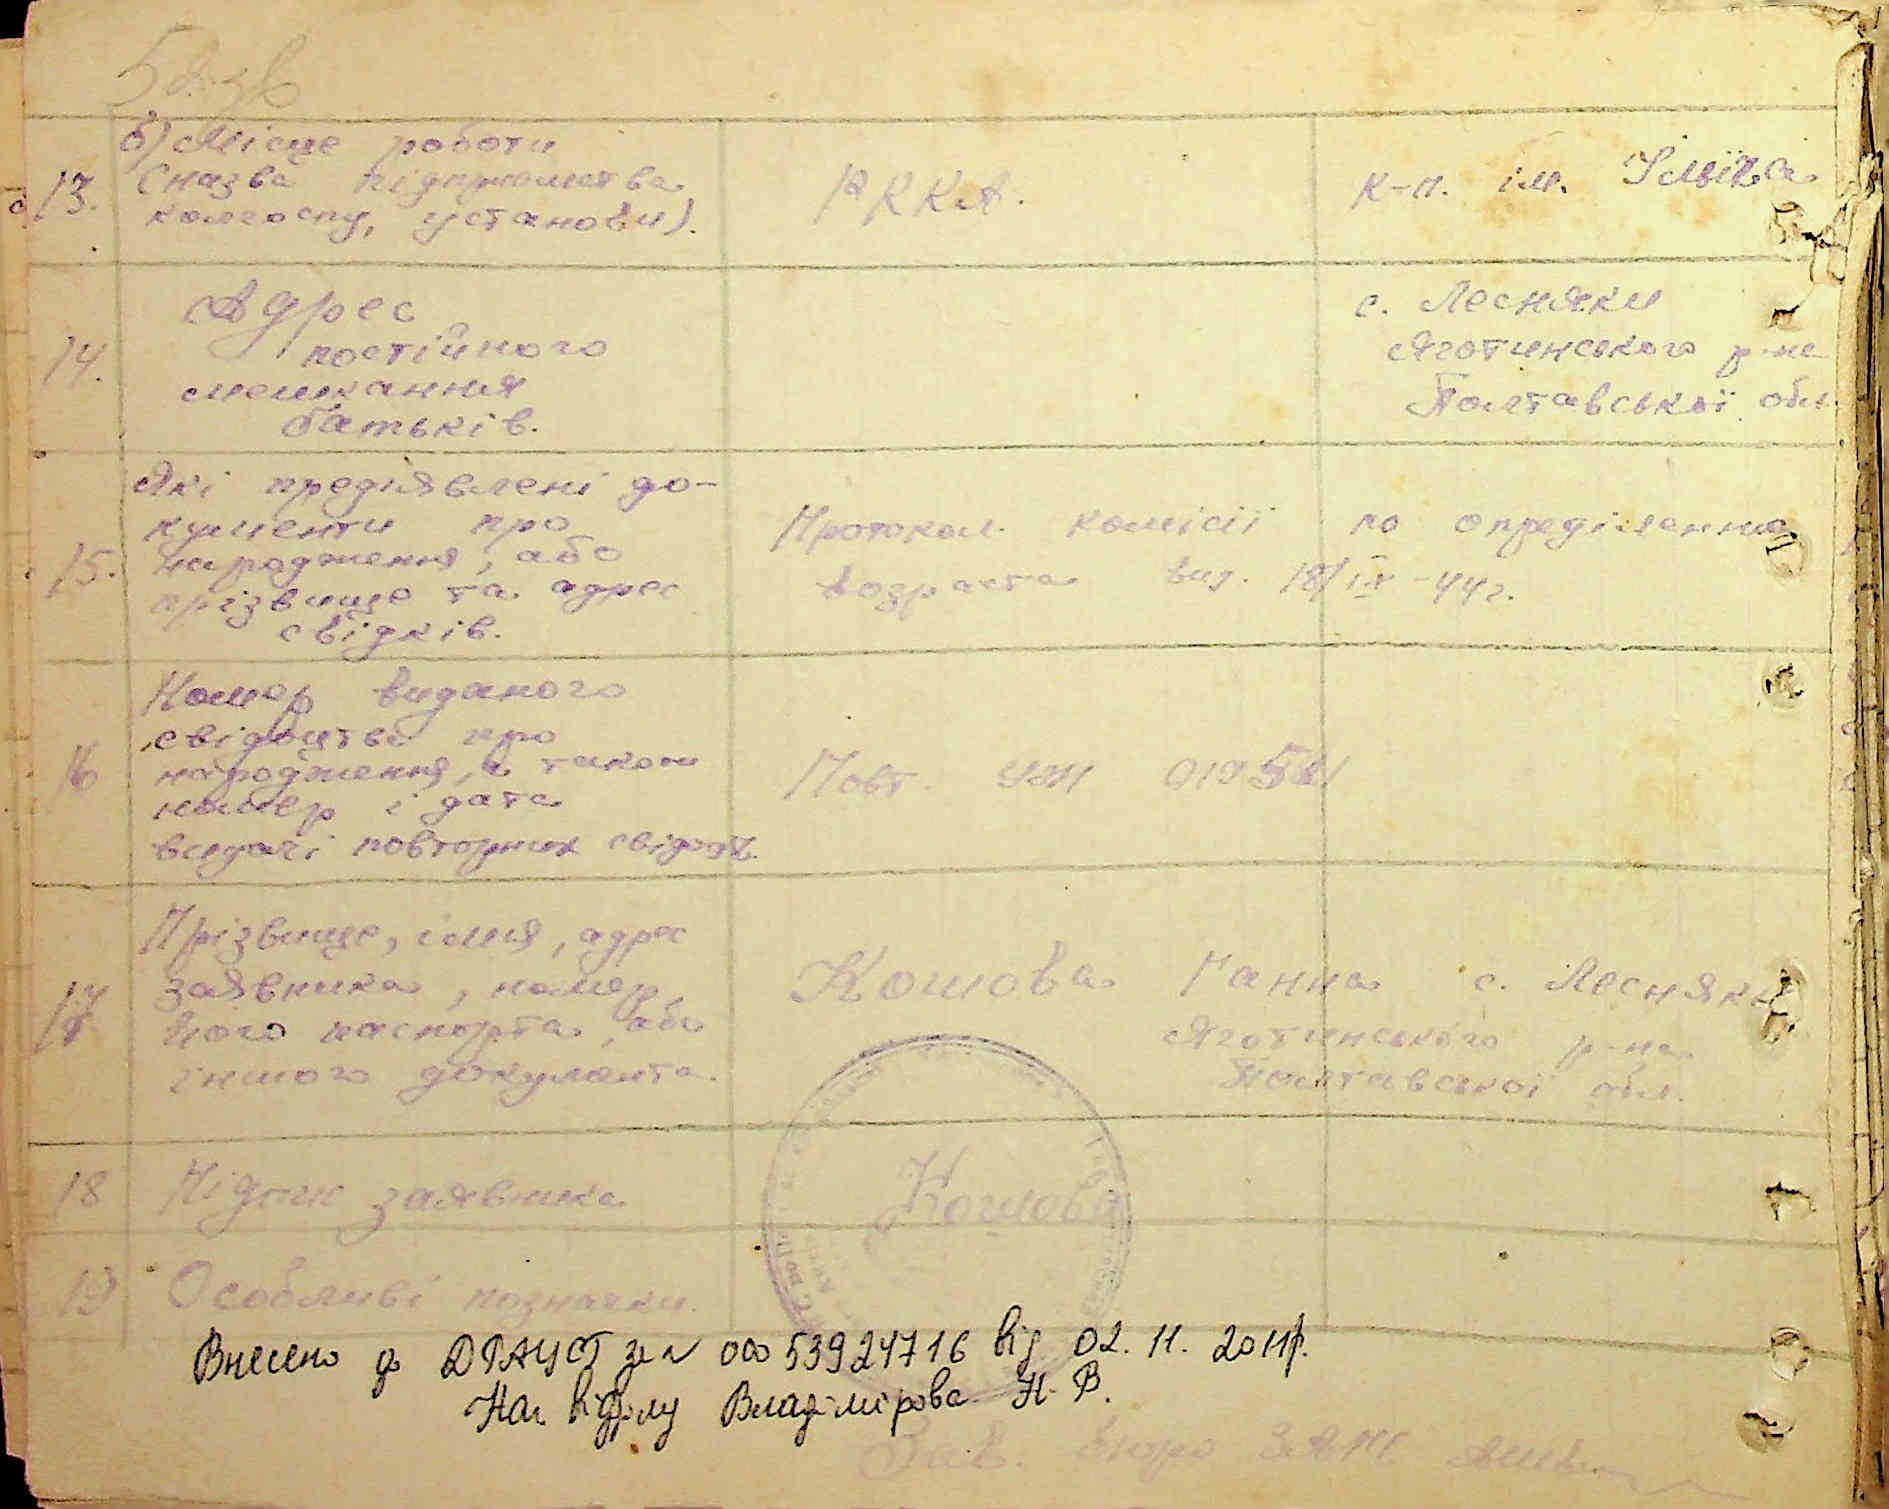 13. б) Місце роботи
(назва підприємства
колгоспу, установи).
Р К К А.
к-п. ім. Ілліча
14. Адрес
постійного
мешкання
батьків.
с. Лесняки
Яготинського р-на
Полтавської обл.
15. Які предіявлені до-
кументи про
народження, або
прізвище та адрес
свідків.
Протокол комісії по опреділенню
возраста вид. 18/IX-44г.
16 Номер виданого
свідоцтва про
народження, а також
номер і дата
видачі повторних свідоцт.
Повт. УЖ
17 Прізвище, імія, адрес
заявника, номер
його паспорта, або
іншого документа.
Кошова Ганна с. Лесняки
Яготинського р-на
Полтавської обл.
18 Підпис заявника
Кошова
19 Особливі позначки.
Внесено до ДРАЦСГ за № 00053924716 від 02. 11. 2011р.
Нач відділу Владімірова Н. В.
Зав. бюро ЗАГС